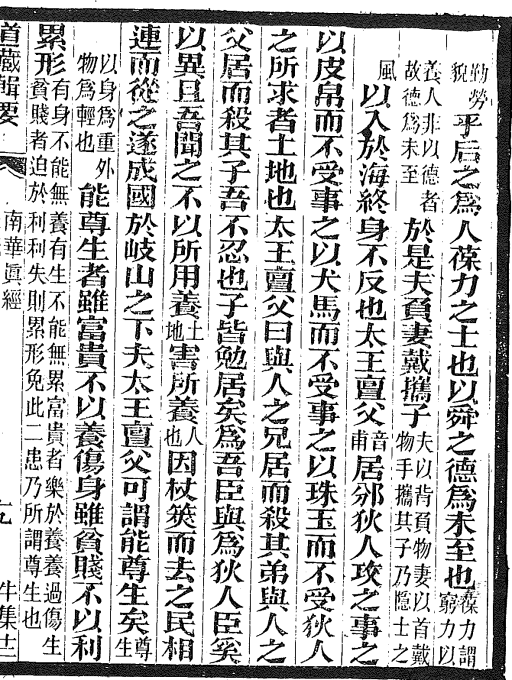 勤勞貌乎后之爲人葆力之士也以舜之德爲未至也葆力謂窮力以
養人非以德者故德爲未至於是夫負妻戴攜子夫以背負物妻以首戴物手攜其子乃隱士之
風以入於海終身不反也太王亶父音甫居邠狄人攻之事之
以皮帛而不受事之以犬馬而不受事之以珠玉而不受狄人
之所求者土地也太王亶父曰與人之兄居而殺其弟與人之
父居而殺其子吾不忍也子皆勉居矣爲吾臣與爲狄人臣奚
以異且吾聞之不以所用養土地害所養人也因杖筴而去之民相
連而從之遂成國於岐山之下夫太王亶父可謂能尊生矣尊生
以身爲重外物爲輕也能尊生者雖富貴不以養傷身雖貧賤不以利
累形有身不能無養有生不能無累富貴者樂於養養過傷生貧賤者迫於利利失則累形免此二患乃所謂尊生也
道藏輯要 南華眞經 牛集